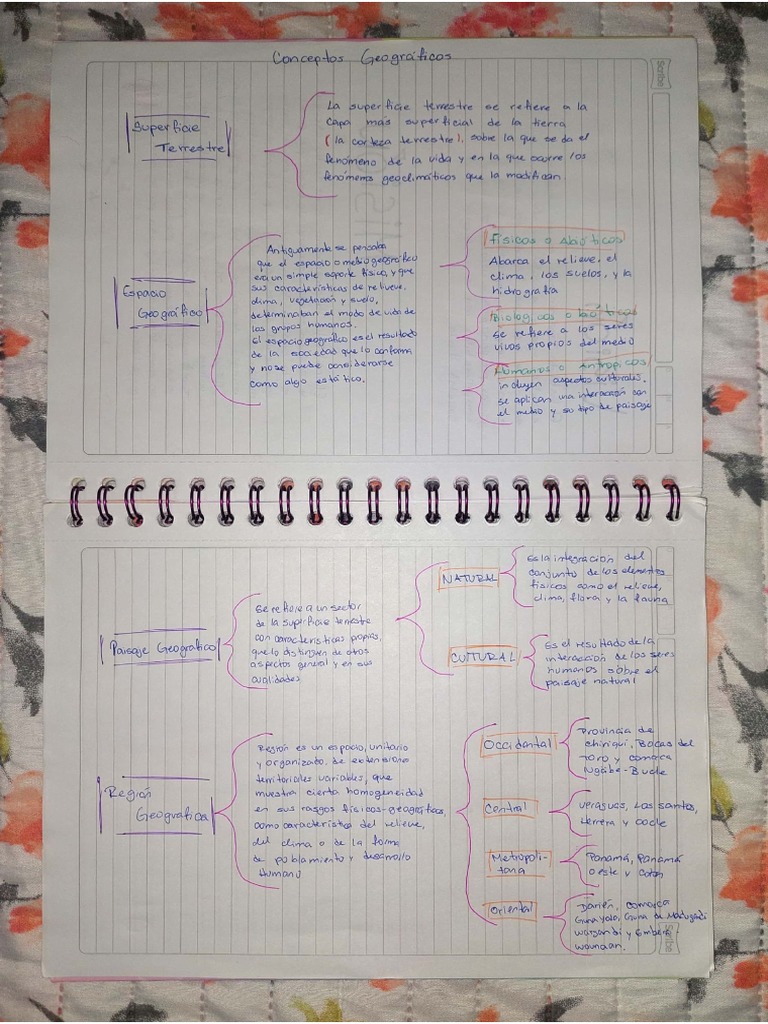 Conceptos Geográficos
Scribe
Superficie
Terrestre
La superficie terrestre se refiere a la
capa más superficial de la tierra
(la corteza terrestre), sobre la que se da el
fenómeno de la vida y en la que ocurre los
fenómenos geoclimáticos que la modifican
Espacio
Geográfico
Antiguamente se pensaba
que el espacio o medio geográfico
era un simple soporte físico, y que
sus características de relieve,
clima, vegetación y suelo,
determinaban el modo de vida de
los grupos humanos.
El espacio geográfico es el resultado
de la sociedad que lo conforma
y no se puede considerarse
como algo estático.
Físicos o Abióticos
Abarca el relieve, el
clima, los suelos, y la
hidrografía
Biologicos o bióticos
se refiere a los seres
vivos propios del medio
Humanos o Antropicos
incluyen aspectos culturales,
se aplican una interacción con
el medio y su tipo de paisaje
Paisaje Geográfico
Se refiere a un sector
de la superficie terrestre
con características propias,
que lo distinguen de otros
aspectos general y en sus
cualidades
NATURAL
Es la integración del
conjunto de los elementos
físicos como el relieve,
clima, flora y la fauna
CULTURAL
Es el resultado de la
interacción de los seres
humanos sobre el
paisaje natural
Región
Geografica
Región es un espacio, unitario
y organizado, de extensiones
territoriales variables, que
muestra cierta homogeneidad
en sus rasgos físicos-geográficos,
como característica del relieve,
del clima o de la forma
de poblamiento y desarrollo
Humano
Occidental
Provincia de
chiriqui, Bocas del
toro y comarca
Ngäbe-Bugle
Central
veraguas, Los santos,
Herrera y cocle
Metropoli-
tana
Panamá, Panamá
Oeste y Colon
Oriental
Darién, comarca
Guna yala, Guna de Madugandi
wargandi y Embera-
wounaan.
Scribe